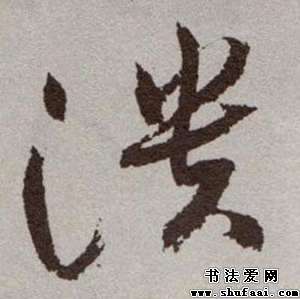 溃
书法爱网
www.shufaai.com